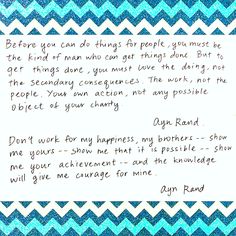 Before you can do things for people, you must be
the kind of man who can get things done. But to
get things done, you must love the doing, not
the secondary consequences. The work, not the
people. Your own action, not any possible
object of your charity
Ayn Rand.
Don't work for my happiness, my brothers -- show
me yours -- show me that it is possible -- show
me your achievement -- and the knowledge
will give me courage for mine.
Ayn Rand